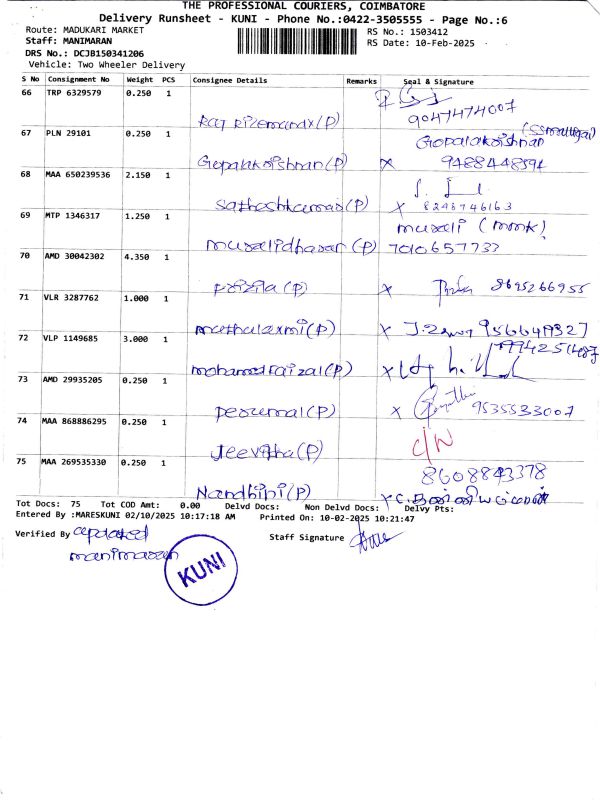 THE PROFESSIONAL COURIERS, COIMBATORE
Delivery Runsheet - KUNI - Phone No.:0422-3505555 - Page No.:6
Route: MADUKARI MARKET
RS No.: 1503412
Staff: MANIMARAN
RS Date: 10-Feb-2025
DRS No.: DCJB150341206
Vehicle: Two Wheeler Delivery
S No Consignment No Weight PCS Consignee Details Remarks Seal & Signature
66 TRP 6329579 0.250 1
(P) 9047474007
67 PLN 29101 0.250 1
Gopalakrishnan
Gopalakrishnan(P) x 9488448594
68 MAA 650239536 2.150 1
Sathashkumar(P) x 8248746163
69 MTP 1346317 1.250 1
murali (mmk)
muralidharan (P) 7010657733
70 AMD 30042302 4.350 1
(P) x 8695266955
71 VLR 3287762 1.000 1
muthulaxmi(P) x 9566419327
72 VLP 1149685 3.000 1
mohamedfaizal(P) x
73 AMD 29935205 0.250 1
perumal(P) x 9535533007
74 MAA 868886295 0.250 1
C/N
Jeevitha(P)
75 MAA 269535330 0.250 1
8608843378
Nandhini(P) x
Tot Docs: 75 Tot COD Amt: 0.00 Delvd Docs: Non Delvd Docs: Delvy Pts:
Entered By :MARESKUNI 02/10/2025 10:17:18 AM Printed On: 10-02-2025 10:21:47
Verified By updated
Staff Signature
manimaran
KUNI